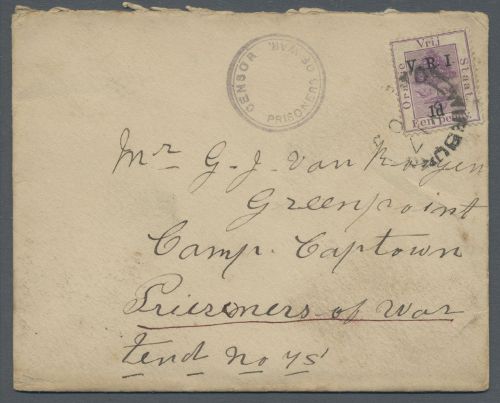 CENSOR PRISONERS OF WAR.
Vrij
Oranje
Staat
V.R.I.
1d
Een penny
Mr G. J. Van Rooyen
Greenpoint
Camp. Captown
Priesoners of War
tend No 45